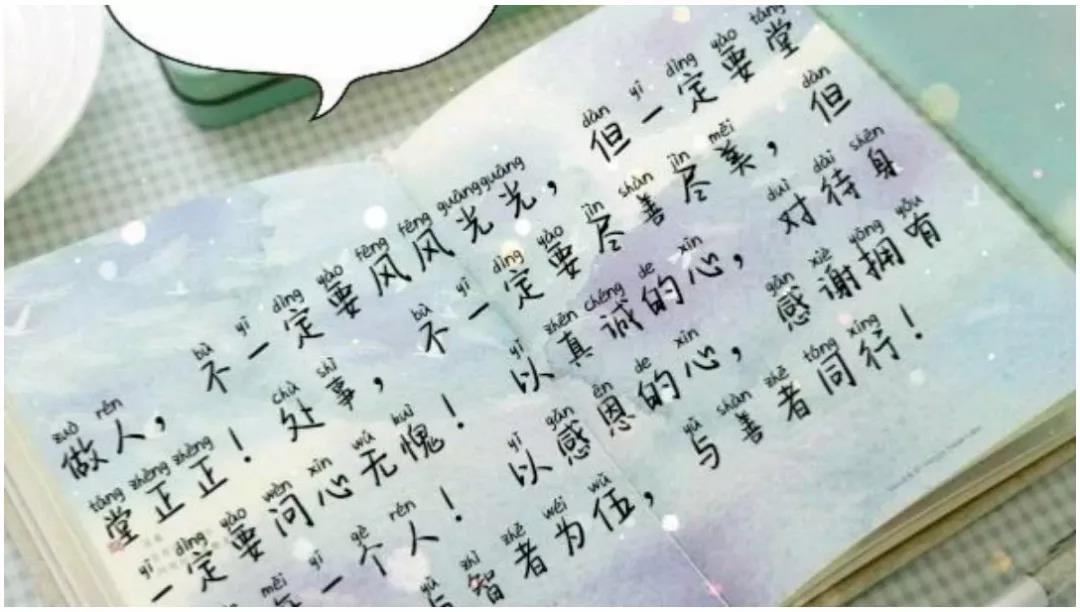 zuò rén bù yī dìng yào fēng fēng guāng guāng dàn yī dìng yào táng
做人，不一定要风风光光，但一定要堂
táng zhèng zhèng chù shì bù yī dìng yào jìn shàn jìn měi dàn
堂正正！处事，不一定要尽善尽美，但
yī dìng yào wèn xīn wú kuì yǐ zhēn chéng de xīn duì dài shēn
一定要问心无愧！以真诚的心，对待身
měi yī gè rén yǐ gǎn ēn de xīn gǎn xiè yōng yǒu
每一个人！以感恩的心，感谢拥有
yǔ zhì zhě wéi wǔ yǔ shàn zhě tóng xíng
与智者为伍，与善者同行！